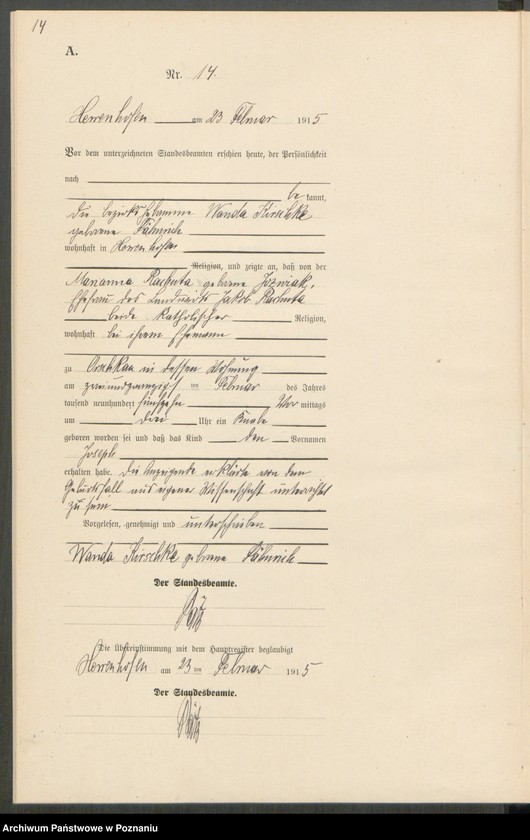 14
A.
Nr. 14.
Herrenhofen am 23 Februar 1915
Vor dem unterzeichneten Standesbeamten erschien heute, der Persönlichkeit
nach
be kannt,
die Bezirkshebamme Wanda Kirschke
geborene
wohnhaft in Herrenhofen
Religion, und zeigte an, daß von der
Marianna Rachuta geborene Jozwiak,
Ehefrau des Landwirts Jakob Rachuta
beide katholischer Religion,
wohnhaft bei ihrem Ehemann
zu in dessen Wohnung
am zweiundzwanzigst en Februar des Jahres
tausend neunhundert fünfzehn Vor mittags
um drei Uhr ein Knabe
geboren worden sei und daß das Kind den Vornamen
Joseph
erhalten habe. Die Anzeigende erklärte von dem
Geburtsfall aus eigener Wissenschaft unterrichtet
zu sein.
Vorgelesen, genehmigt und unterschrieben
Wanda Kirschke geborene
Der Standesbeamte.
Die Übereinstimmung mit dem Hauptregister beglaubigt
Herrenhofen am 23 ten Februar 1915
Der Standesbeamte.
Archiwum Państwowe w Poznaniu